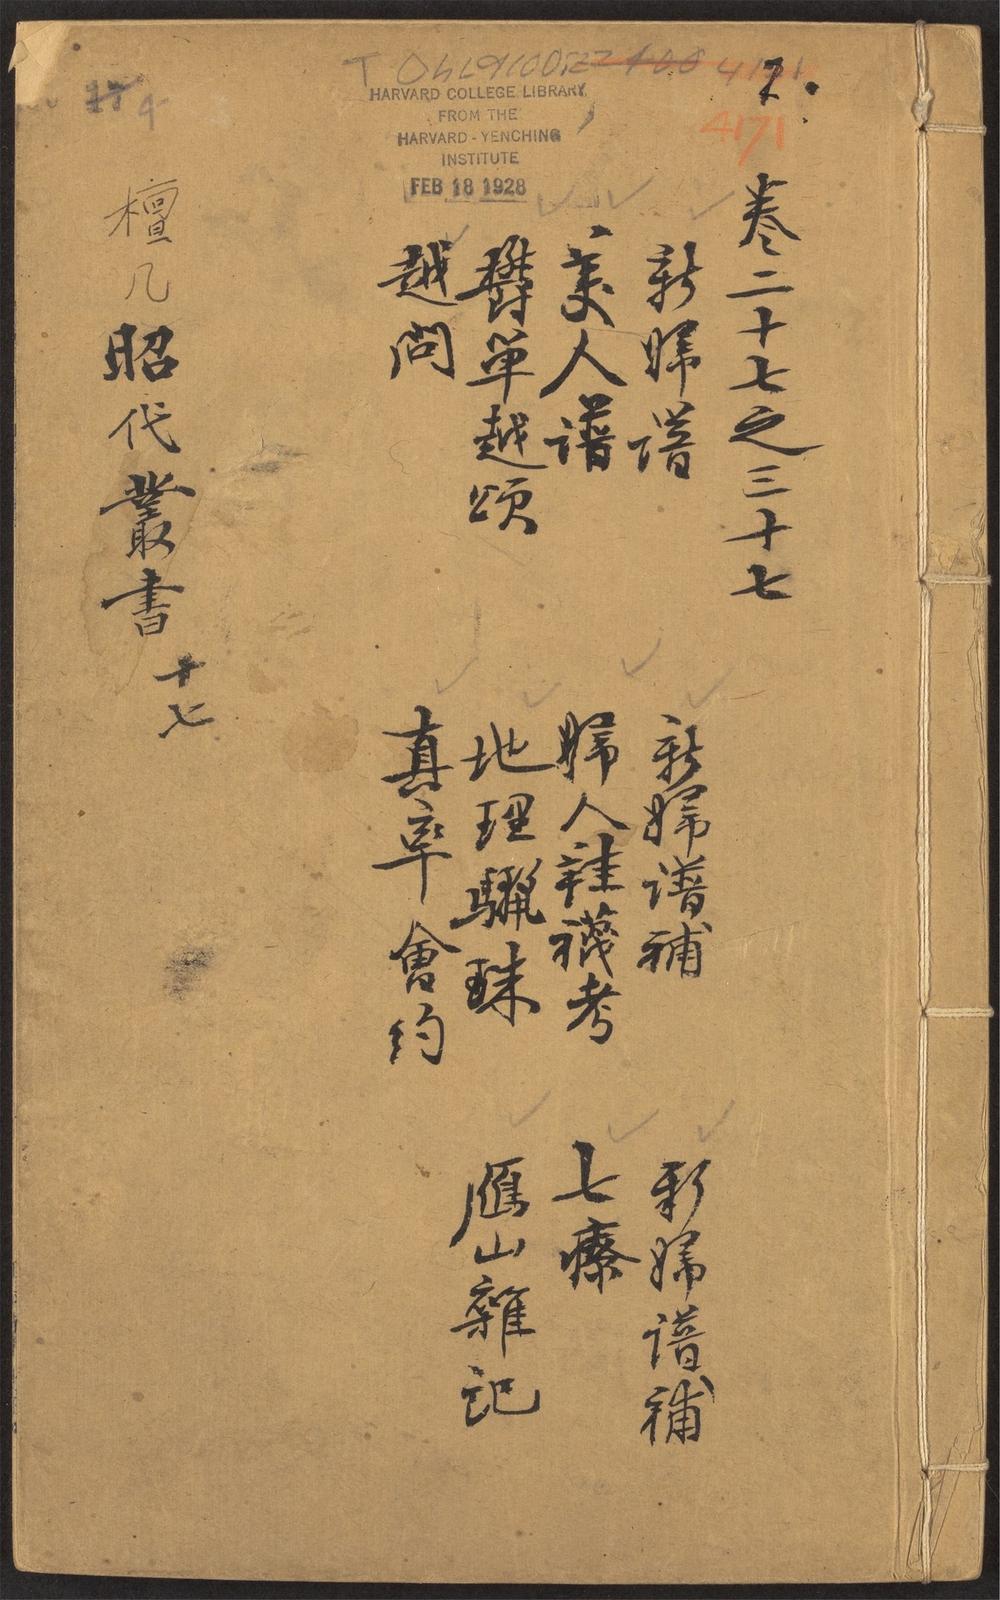 HARVARD COLLEGE LIBRARY
FROM THE
HARVARD-YENCHING
INSTITUTE
FEB 18 1928
4171
卷二十七之三十七
新婦譜
新婦譜補
新婦譜補
美人譜
婦人鞋襪考
七療
欝單越頌
地理驪珠
雁山雜記
越問
真率會約
檀几
昭代叢書
十七